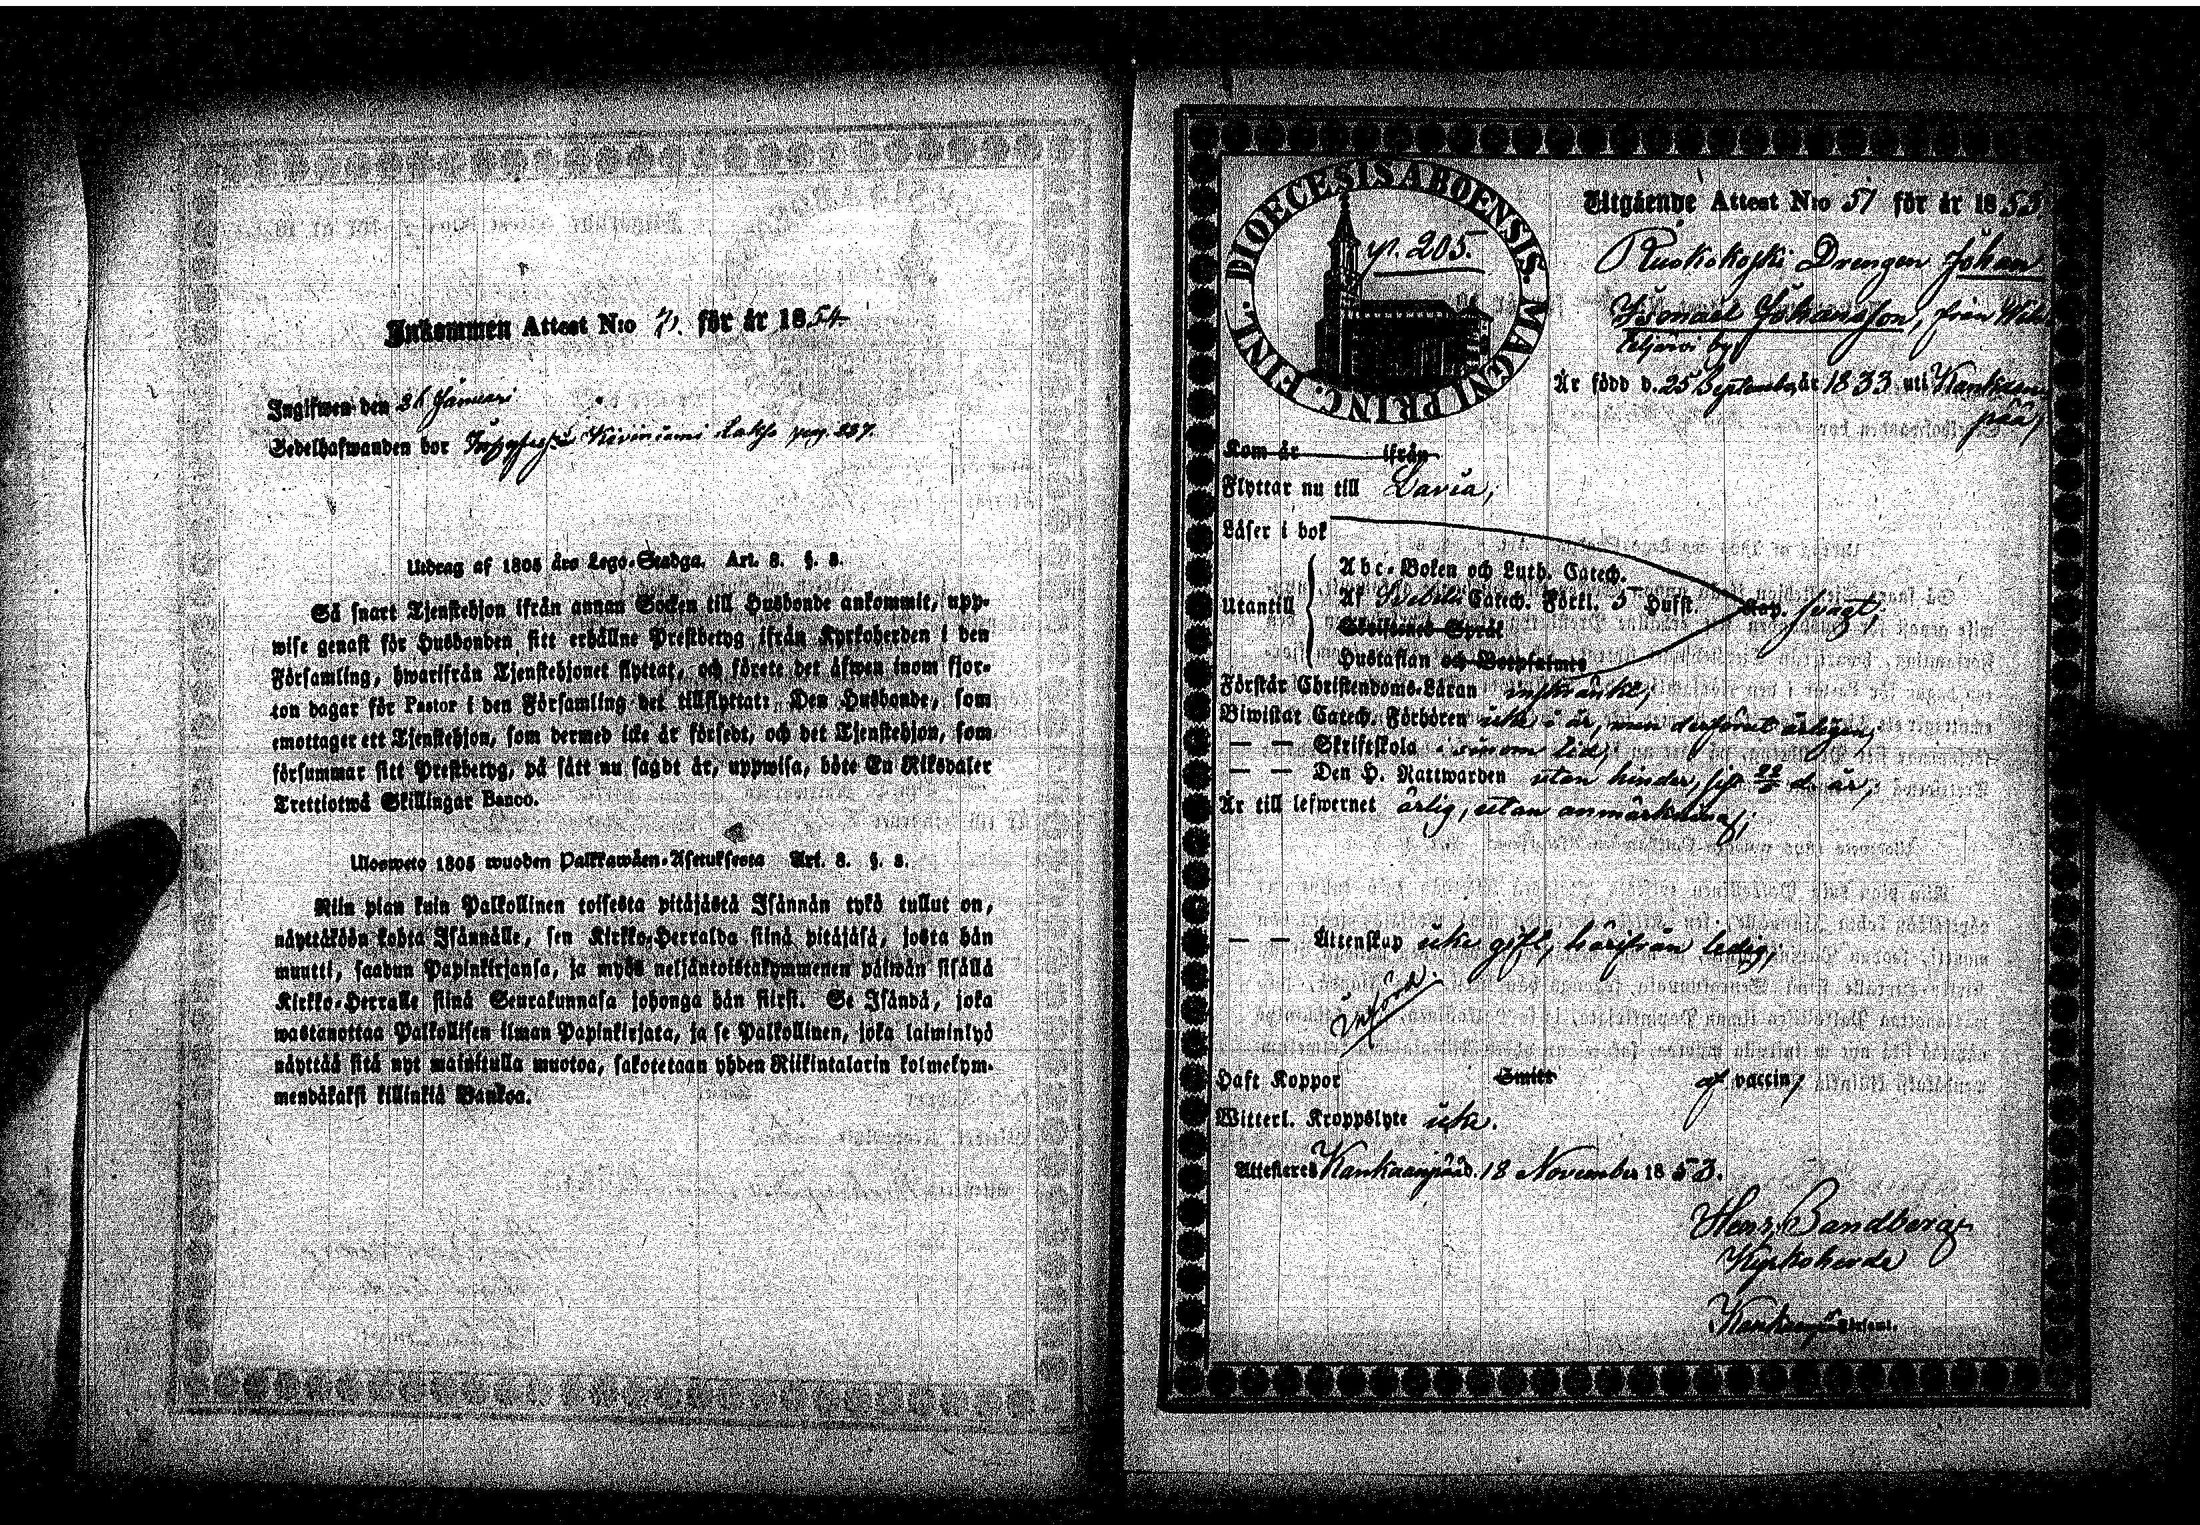 Inkommen Attest N:o 71. för år 1854
Ingifwen den 21 Januari
Sedelhafwanden bor Kiviniemi pag. 227.
Utdrag af 1805 års Lego-Stadga. Art. 8. §. 8.
Så snart Tjenstehjon ifrån annan Socken till Husbonde ankommit, upp-
wise genast för Husbonden sitt erhållne Prestbetyg ifrån Kyrkoherden i den
Församling, hwarifrån Tjenstehjonet flyttat, och förete det äfwen inom fjor-
ton dagar för Pastor i den Församling det tillflyttat: Den Husbonde, som
emottager ett Tjenstehjon, som dermed icke är försedt, och det Tjenstehjon, som
försummar sitt Prestbetyg, på sätt nu sagdt är, uppwisa, böte En Riksdaler
Trettiotwå Skillingar Banco.
Ulosweto 1805 wuoden Palkkawäen-Asetuksesta Art. 8. §. 8.
Niin pian kuin Palkollinen toisesta pitäjästä Isännän tykö tullut on,
näyttäköön kohta Isännälle, sen Kirkko-Herralda siinä pitäjäsä, josta hän
muutti, saadun Papinkirjansa, ja myös neljäntoistakymmenen päiwän sisällä
Kirkko-Herralle siinä Seurakunnasa johonga hän siirsi. Se Isändä, joka
wastanottaa Palkollisen ilman Papinkirjata, ja se Palkollinen, joka laiminlyö
näyttää sitä nyt mainitulla muotoa, sakotetaan yhden Riikintalarin kolmekym-
mendäkaksi killinkiä Bankoa.
DIOECESIS ABOENSIS. MAGNI PRINC. FINL.
p. 205.
Utgående Attest N:o 51 för år 1853
Ruokokoski Drengen Johan
Ismael Johansson, från
by
Är född d. 25 September år 1833 uti Kankaan
pää,
Kom år ifrån
Flyttar nu till Lavia,
Läser i bok
Utantill
Abc-Boken och Luth. Catech.
Af Svebili Catech. Förkl. 5 Hufst. Kap. svagt,
Skriftenes Språk
Hustaflan och Botpsalmes
Förstår Christendoms-Läran inskränkt,
Biwistat Catech. Förhören icke i år, men derförut årligen,
— — Skriftskola i sinom tid,
— — Den H. Nattwarden utan hinder,
Är till lefwernet ärlig, utan anmärkning,
— — Äktenskap icke gift, härifrån ledig,
Införd.
Haft Koppor Smitt af vaccin,
Witterl. Kroppslyte icke.
Attesteras Kankaanpää d. 18 November 1853.
Henr. Sandberg
Kyrkoherde
Kankaanpää